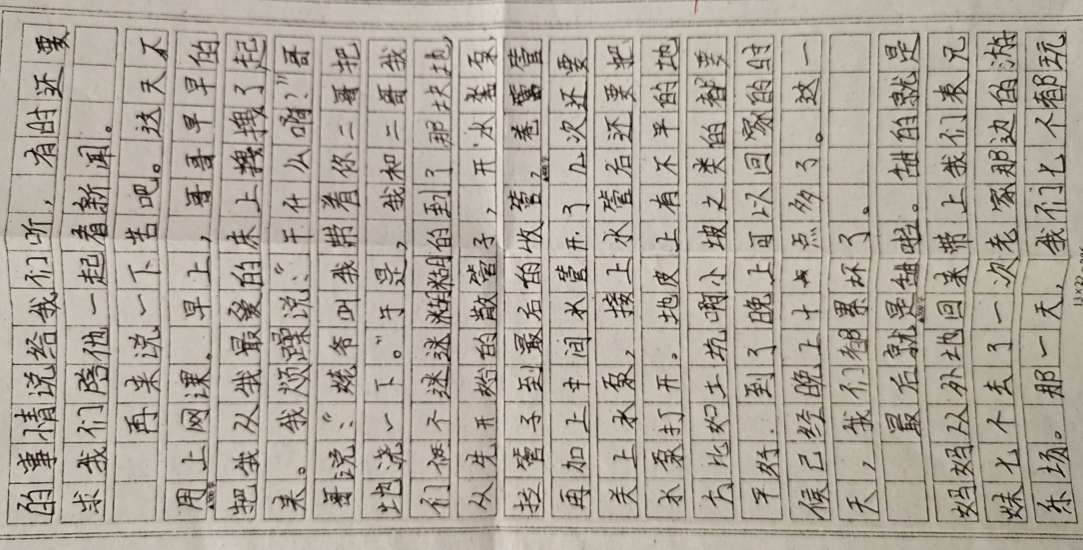 的事情说给我们听，有时还要
求我们陪他一起看新闻。
再来说一下苦吧。这天不
用上网课。早上，哥哥早早的
把我从我最爱的床上拽了起
来。我烦躁说：“干什么啊？”哥
哥说：“爷叫我带着你二哥把
地浇一下。”于是，我和二哥我
们仨个迷迷糊糊的到了那块地，
从先开始的散管子，开水泵
拉管子到最后的收管，卷管
再加上中间水管开了几次还要
关上水泵，接上水管后还要把
水泵打开。地皮上有不平的地
方比如土坑啊小坡之类的都要
平好。到了晚上可以回家的时
候已经晚上十点多了。这一
天，我们都累坏了。
最后就是甜啦。甜的就是
妈妈从外地回来带上我们表兄
妹七个去了一次老家那边的游
乐场。那一天，我们七个都玩